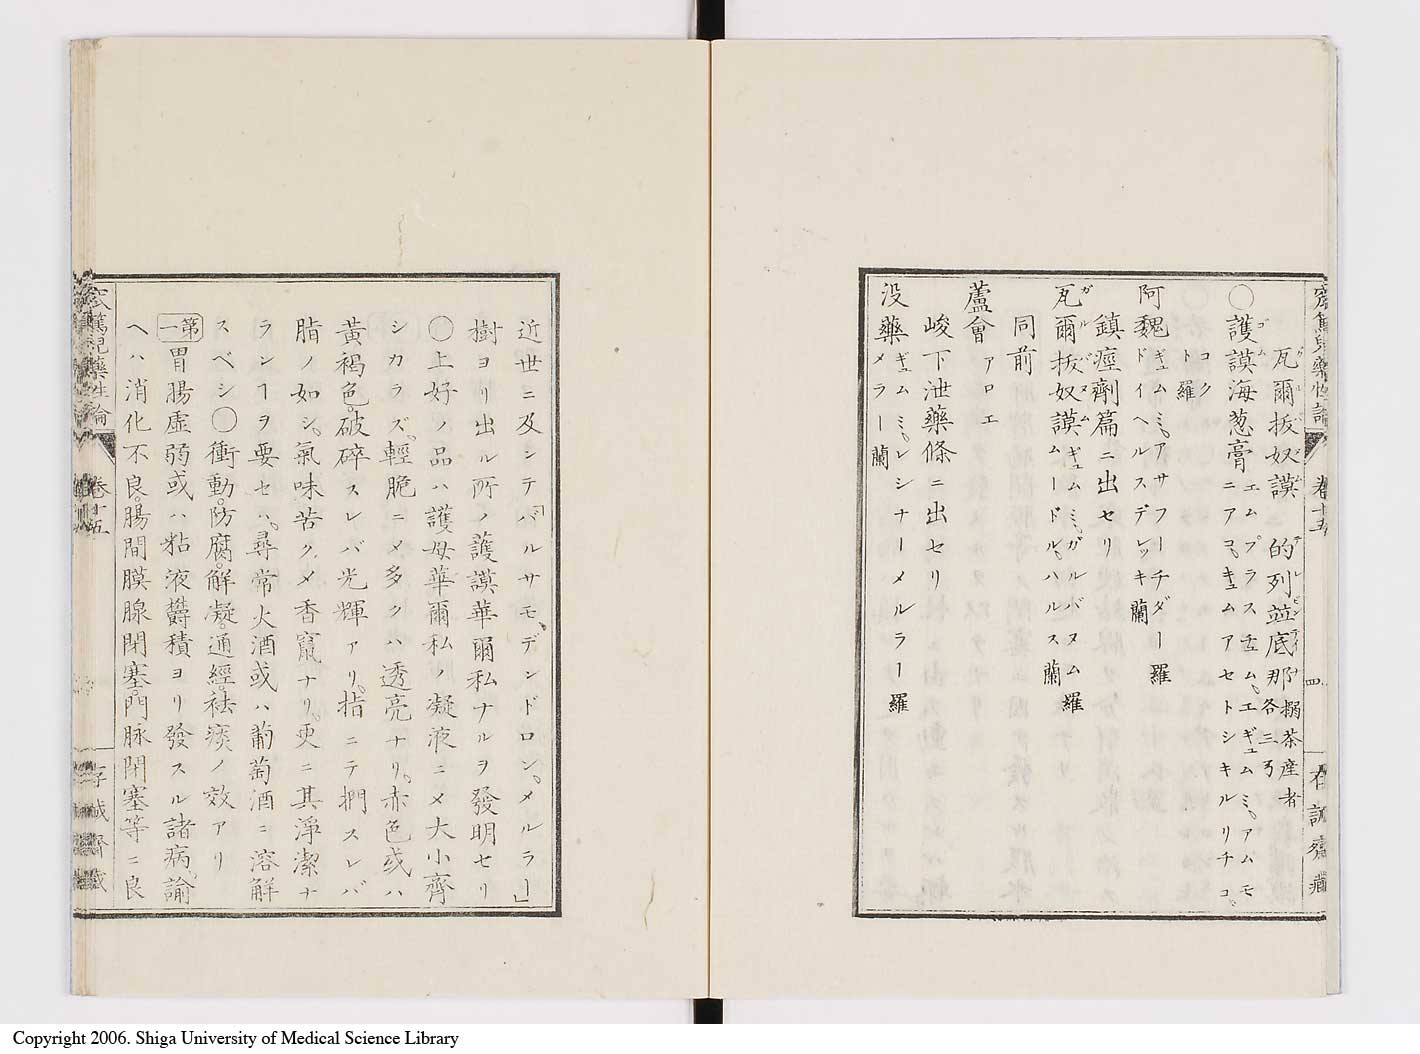 窊篤兒藥性論 卷十五 四 存誠齋藏
瓦爾抜奴謨 的列並底那 搦茶産者 各三ゟ
○護謨海葱膏 エムプラスㇳエム、エギュムミ、アムモニアコ、キュムアセトシキルリチコ、コク
ト 羅
阿魏 ギュムミ、アサフーチダー 羅
ドイヘルスデレッキ 蘭
鎮痙劑篇ニ出セリ
瓦爾抜奴謨 ギュムミ、ガルバヌム 羅
ムードル、ハルス 蘭
同前
蘆會 アロエ
峻下泄藥條ニ出セリ
没藥 ギュムミ、レシナーメルラー 羅
メラー 蘭
近世ニ及シテ「バルサモ、デンドロン、メルラ」
樹ヨリ出ル所ノ護謨華爾私ナルヲ發明セリ
○上好ノ品ハ護母華爾私ノ凝液ニメ大小齊
シカラズ、輕脆ニメ多クハ透亮ナリ、赤色或ハ
黃褐色、破碎スレバ光輝アリ、指ニテ捫スレバ
脂ノ如シ、氣味苦クメ香竄ナリ、更ニ其淨潔ナ
ランヿヲ要セハ、尋常火酒或ハ葡萄酒ニ溶解
スベシ○衝動、防腐、解凝、通經、祛痰ノ效アリ
第一 胃腸虛弱或ハ粘液欝積ヨリ發スル諸病、諭
ヘハ消化不良、腸間膜腺閉塞、門脉閉塞等ニ良
窊篤兒藥性論 卷十五 存誠齋藏
Copyright 2006. Shiga University of Medical Science Library